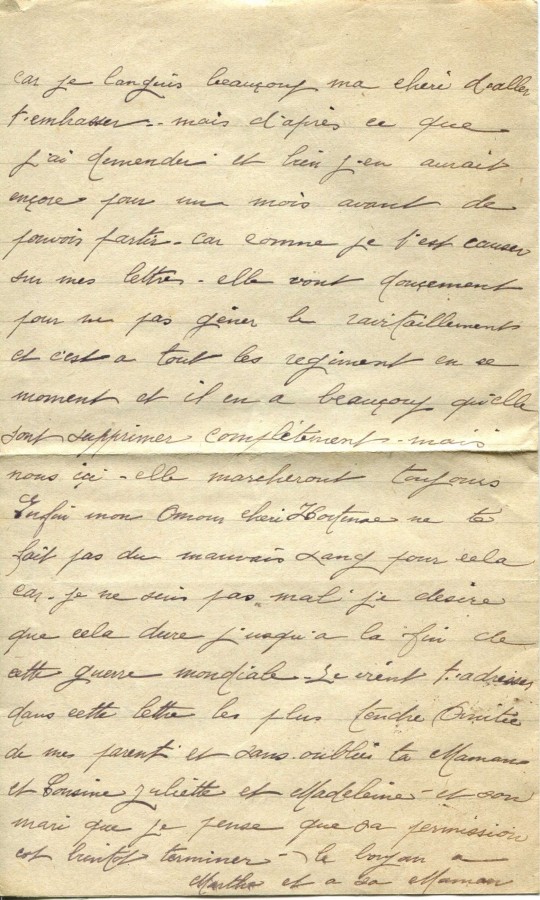 car je languis beaucoup ma cheri d'aller
t'embrasser - mais d'après ce que
j'ai demender et bien j'en aurait
encore pour un mois avant de
pouvoir partir - car comme je t'est causer
sur mes lettres - elle vont doucement
pour ne pas gèner le ravitaillements
et c'est a tout les regiment en se
moment et il en a beaucoup qu'elle
sont supprimer complètement - mais
nous içi - elle marcheront toujours
Enfin mon Amour cheri Hortense ne te
fait pas du mauvais sang pour cela
car - je ne suis pas mal je desire
que cela dure j'usqu'a la fin de
cette guerre mondiale - Je vient t'adresser
dans cette lettre les plus tendre Amitie
de mes parent et sans oublier ta Maman
et Cousine Juliette et Madeleine - et son
mari que je pense que sa permission
est bientot terminer - le bonjour a
Marthe et a sa Maman